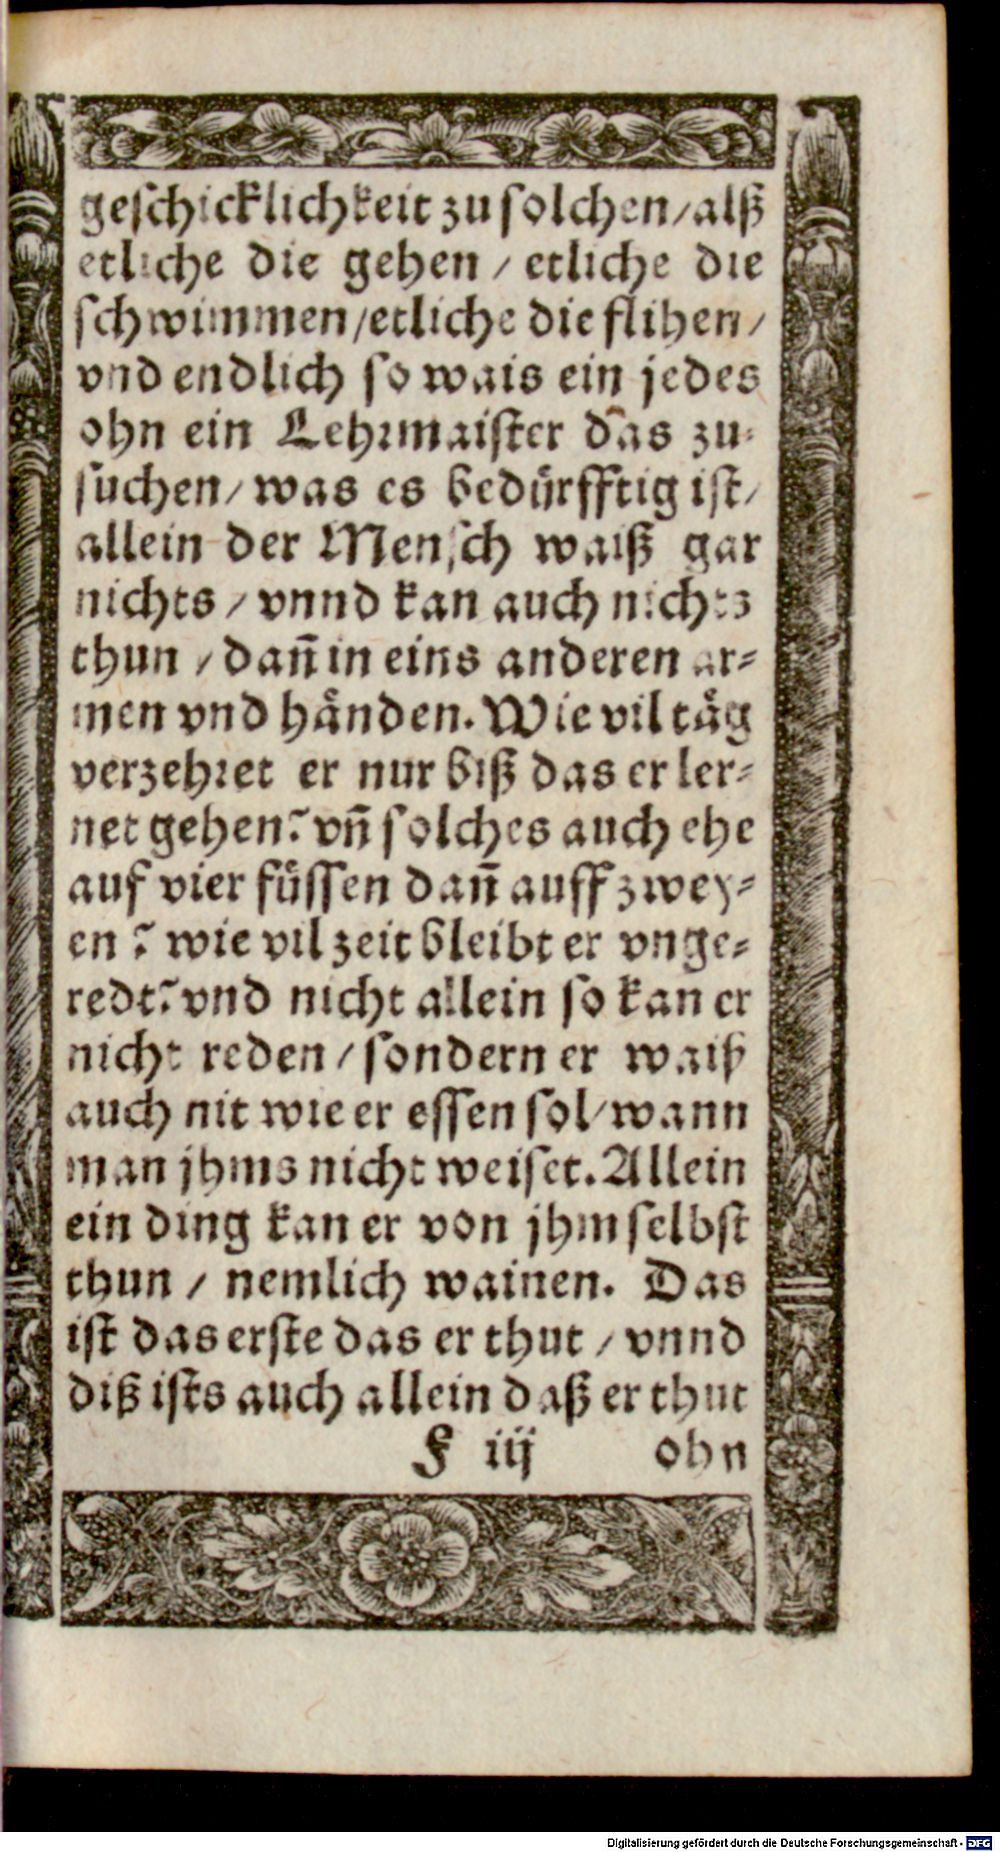 geschicklichkeit zu solchen / alß
etliche die gehen / etliche die
schwimmen / etliche die flihen /
vnd endlich so wais ein jedes
ohn ein Lehrmaister das zu-
suchen / was es bedürfftig ist /
allein der Mensch waiß gar
nichts / vnnd kan auch nichts
thun / dañ in eins anderen ar-
men vnd händen. Wie vil täg
verzehret er nur biß das er ler-
net gehen? vñ solches auch ehe
auf vier füssen dañ auff zwey-
en? wie vil zeit bleibt er vnge-
redt? vnd nicht allein so kan er
nicht reden / sondern er waiß
auch nit wie er essen sol / wann
man jhms nicht weiset. Allein
ein ding kan er von jhm selbst
thun / nemlich wainen. Das
ist das erste das er thut / vnnd
diß ists auch allein daß er thut
F iij ohn
Digitalisierung gefördert durch die Deutsche Forschungsgemeinschaft - DFG